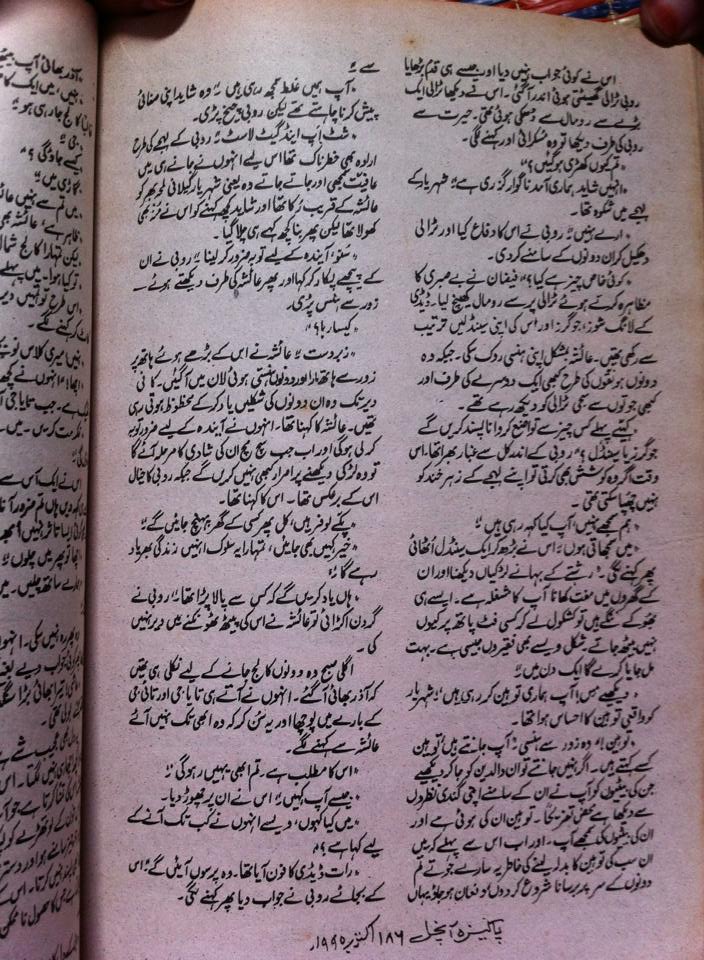 اس نے کوئی جواب نہیں دیا اور جیسے ہی قدم بڑھایا
روبی ٹرالی گھسیٹتی ہوئی اندر آ گئی۔ اس نے دیکھا ٹرالی ایک
بڑے سے رومال سے ڈھکی ہوئی تھی۔ حیرت سے
روبی کی طرف دیکھا تو وہ مسکرائی اور کہنے لگی۔
"تم کیوں کھڑی ہو گئیں؟"
"انہیں شاید ہماری آمد ناگوار گزری ہے" شہریار کے
لہجے میں شکوہ تھا۔
"ارے نہیں" روبی نے اس کا دفاع کیا اور ٹرالی
دھکیل کر ان دونوں کے سامنے کر دی۔
"کوئی خاص چیز ہے کیا؟" فیضان نے بے صبری کا
مظاہرہ کرتے ہوئے ٹرالی پر سے رومال کھینچ لیا۔ ڈیڈی
کے لانگ شوز، جوگرز اور اس کی اپنی سینڈلیں ترتیب
سے رکھی تھیں۔ عائشہ بمشکل اپنی ہنسی روک سکی۔ جبکہ وہ
دونوں ہونقوں کی طرح کبھی ایک دوسرے کی طرف اور
کبھی جوتوں سے سجی ٹرالی کو دیکھ رہے تھے۔
"کہیئے پہلے کس چیز سے تواضع کروانا پسند کریں گے
جوگرز یا سینڈل؟" روبی کے اندر کل سے غبار بھرا تھا۔ اس
وقت اگر وہ کوشش بھی کرتی تو اپنے لہجے کے زہر خند کو
نہیں چھپا سکتی تھی۔
"ہم سمجھے نہیں، آپ کیا کہہ رہی ہیں"
"میں سمجھاتی ہوں" اس نے بڑھ کر ایک سینڈل اٹھائی
پھر کہنے لگی۔ "رشتے کے بہانے لڑکیاں دیکھنا اور ان
کے گھروں میں مفت کھانا آپ کا مشغلہ ہے۔ ایسے ہی
بھوکے ننگے ہیں تو کشکول لے کر کسی فٹ پاتھ پر کیوں
نہیں بیٹھ جاتے۔ شکل ویسے بھی فقیروں جیسی ہے۔ بہت
مل جایا کرے گا ایک دن میں"
"دیکھئے مس! آپ ہماری توہین کر رہی ہیں" شہریار
کو واقعی توہین کا احساس ہوا تھا۔
"توہین!" وہ زور سے ہنسی۔ "آپ جانتے ہیں توہین
کسے کہتے ہیں۔ اگر نہیں جانتے تو ان والدین کو جا کر دیکھیے
جن کی بیٹیوں کو آپ نے ان کے سامنے اپنی گندی نظروں
سے دیکھا ہے محض تفریحاً۔ توہین ان کی ہوئی ہے اور
ان کی بیٹیوں کی سمجھے آپ۔ اور اب اس سے پہلے کہ میں
ان سب کی توہین کا بدلہ لینے کی خاطر یہ سارے جوتے تم
دونوں کے سر پر برسانا شروع کر دوں دفعان ہو جاؤ یہاں
سے"
"آپ ہمیں غلط سمجھ رہی ہیں" وہ شاید اپنی صفائی
پیش کرنا چاہتے تھے لیکن روبی چیخ پڑی۔
"شٹ اپ اینڈ گیٹ لاسٹ" روبی کے لہجے کی طرح
ارادہ بھی خطرناک تھا اس لیے انہوں نے جانے ہی میں
عافیت سمجھی اور جاتے جاتے وہ یعنی شہریار گیلانی لمحہ بھر کو
عائشہ کے قریب رکا تھا اور شاید کچھ کہنے کو اس نے منہ بھی
کھولا تھا لیکن پھر بنا کچھ کہے ہی چلا گیا۔
"سنو، آئندہ کے لیے توبہ ضرور کر لینا" روبی نے ان
کے پیچھے پکار کر کہا اور پھر عائشہ کی طرف دیکھتے ہوئے
زور سے ہنس پڑی۔
"کیسا رہا؟"
"زبردست" عائشہ نے اس کے بڑھے ہوئے ہاتھ پر
زور سے ہاتھ مارا اور دونوں ہنستی ہوئی لان میں آ گئیں۔ کافی
دیر تک وہ ان دونوں کی شکلیں یاد کر کے محظوظ ہوتی رہی
تھیں۔ عائشہ کا کہنا تھا۔ انہوں نے آئندہ کے لیے ضرور توبہ
کر لی ہوگی اور اب جب سچ مچ ان کی شادی کا مرحلہ آئے گا
تو وہ لڑکی دیکھنے پر اصرار کبھی نہیں کریں گے جبکہ روبی کا خیال
اس کے برعکس تھا۔ اس کا کہنا تھا۔
"پکے لوفر ہیں، کل پھر کسی کے گھر پہنچ جائیں گے"
"خیر کہیں بھی جائیں، تمہارا یہ سلوک انہیں زندگی بھر یاد
رہے گا"
"ہاں یاد کریں گے کہ کس سے پالا پڑا تھا" روبی نے
گردن اکڑائی تو عائشہ نے اس کی پیٹھ ٹھونکنے میں دیر نہیں
کی۔
اگلی صبح وہ دونوں کالج جانے کے لیے نکلی ہی تھیں
کہ آذر بھائی آ گئے۔ انہوں نے آتے ہی تایا جی اور تائی جی
کے بارے میں پوچھا اور یہ سن کر کہ وہ ابھی تک نہیں آئے
عائشہ سے کہنے لگے۔
"اس کا مطلب ہے۔ تم ابھی یہیں رہو گی"
"جیسے آپ کہیں" اس نے ان پر چھوڑ دیا۔
"میں کیا کہوں، ویسے انہوں نے کب تک آنے کے
لیے کہا ہے؟"
"رات ڈیڈی کا فون آیا تھا۔ وہ پرسوں آئیں گے" اس
کے بجائے روبی نے جواب دیا پھر کہنے لگی۔
پاکیزہ آنچل ۱۸۶ اکتوبر ۱۹۹۵ء